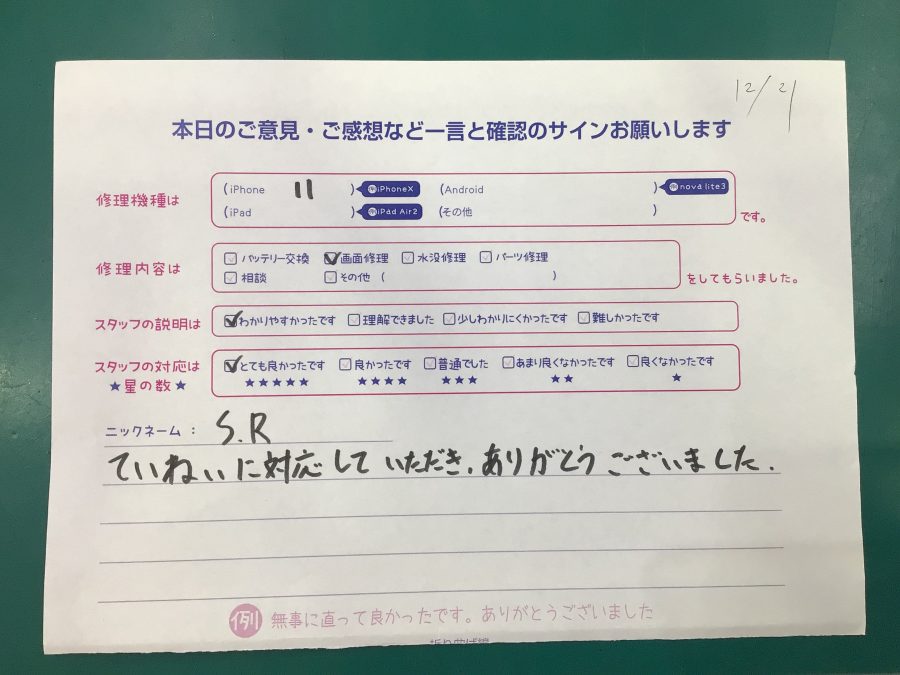 12/21
本日のご意見・ご感想など一言と確認のサインお願いします
修理機種は
(iPhone 11 ) 例iPhoneX (Android ) 例nova lite3
(iPad ) 例iPad Air2 (その他 )
です。
修理内容は
バッテリー交換 画面修理 水没修理 パーツ修理
相談 その他 ( )
をしてもらいました。
スタッフの説明は
わかりやすかったです 理解できました 少しわかりにくかったです 難しかったです
スタッフの対応は
★星の数★
とても良かったです 良かったです 普通でした あまり良くなかったです 良くなかったです
★★★★★ ★★★★ ★★★ ★★ ★
ニックネーム : S.R
ていねいに対応していただき、ありがとうございました.
例 無事に直って良かったです。ありがとうございました